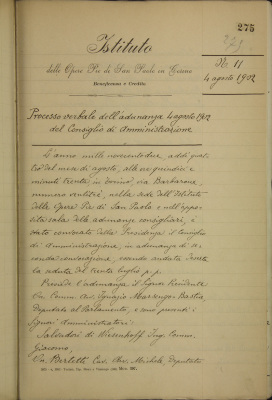 275
Istituto
delle Opere Pie di San Paolo in Torino
Beneficenza e Credito
N. 11
4 agosto 1902
Processo verbale dell'adunanza 4 agosto 1902
del Consiglio di Amministrazione
L'anno mille novecentodue, addì quat
tro del mese di agosto, alle ore quindici e
minuti trenta, in Torino, via Barbaroux,
numero ventinove, nella sede dell'Istituto
delle Opere Pie di San Paolo e nell'appo
sita sala delle adunanze consigliari, è
stato convocato dalla Presidenza il Consiglio
di Amministrazione, in adunanza di se
conda convocazione, essendo andata deserta
la seduta del trenta luglio p. p.
Presiede l'adunanza il Signor Presidente
Comm. Avv. Ignazio Marsengo-Bastia,
Deputato al Parlamento, e sono presenti i
Signori Amministratori:
Salvadori di Wiesenhoff Ing. Comm.
Giacomo
Bertetti Cav. Avv. Michele, Deputato